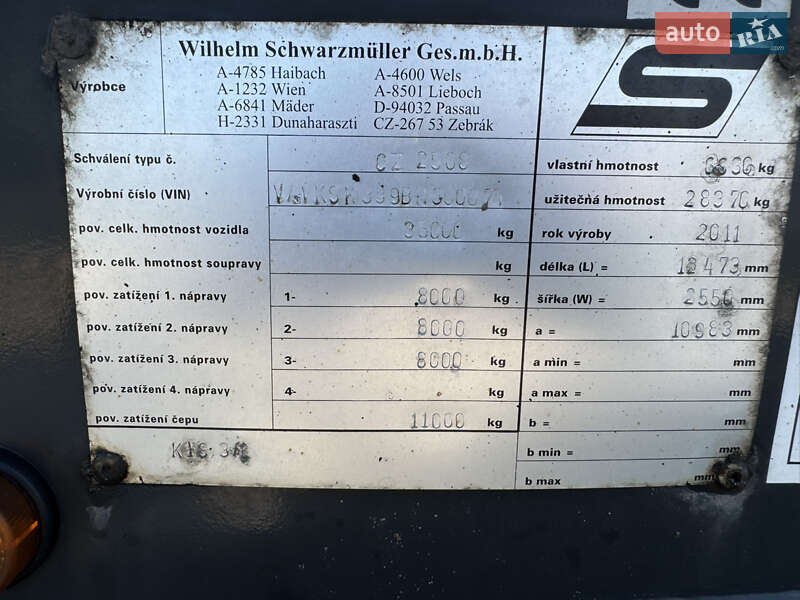 auto RIA .com
Wilhelm Schwarzmüller Ges.m.b.H.
Výrobce
A-4785 Haibach A-4600 Wels
A-1232 Wien A-8501 Lieboch
A-6841 Mäder D-94032 Passau
H-2331 Dunaharaszti CZ-267 53 Zebrák
S
Schválení typu č. CZ
vlastní hmotnost kg
Výrobní číslo (VIN)
užitečná hmotnost 28370 kg
pov. celk. hmotnost vozidla kg
rok výroby 2011
pov. celk. hmotnost soupravy kg
délka (L) = mm
pov. zatížení 1. nápravy 1- 8000 kg
šířka (W) = 2550 mm
pov. zatížení 2. nápravy 2- 8000 kg
a = 10983 mm
pov. zatížení 3. nápravy 3- 8000 kg
a min = mm
pov. zatížení 4. nápravy 4- kg
a max = mm
pov. zatížení čepu 11000 kg
b = mm
b min = mm
b max mm